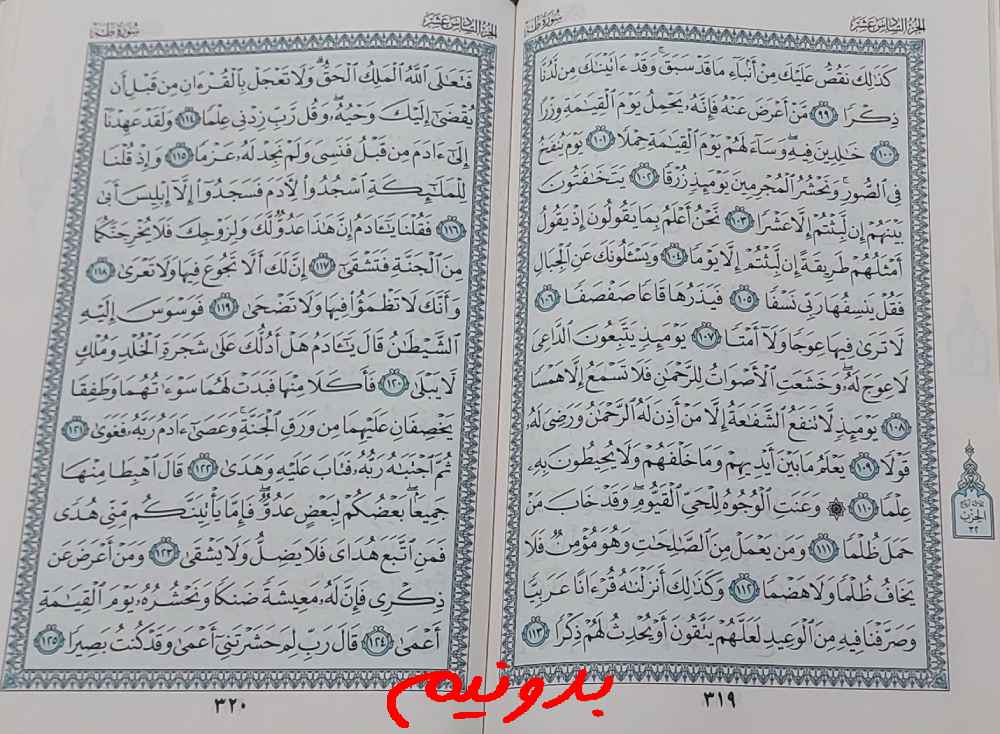 الجزء السادس عشر
سورة طه
كَذَٰلِكَ نَقُصُّ عَلَيْكَ مِنْ أَنۢبَآءِ مَا قَدْ سَبَقَ ۚ وَقَدْ ءَاتَيْنَٰكَ مِن لَّدُنَّا
ذِكْرًا ٩٩ مَّنْ أَعْرَضَ عَنْهُ فَإِنَّهُۥ يَحْمِلُ يَوْمَ ٱلْقِيَٰمَةِ وِزْرًا
١٠٠ خَٰلِدِينَ فِيهِ ۖ وَسَآءَ لَهُمْ يَوْمَ ٱلْقِيَٰمَةِ حِمْلًا ١٠١ يَوْمَ يُنفَخُ
فِى ٱلصُّورِ ۚ وَنَحْشُرُ ٱلْمُجْرِمِينَ يَوْمَئِذٍ زُرْقًا ١٠٢ يَتَخَٰفَتُونَ
بَيْنَهُمْ إِن لَّبِثْتُمْ إِلَّا عَشْرًا ١٠٣ نَّحْنُ أَعْلَمُ بِمَا يَقُولُونَ إِذْ يَقُولُ
أَمْثَلُهُمْ طَرِيقَةً إِن لَّبِثْتُمْ إِلَّا يَوْمًا ١٠٤ وَيَسْـَٔلُونَكَ عَنِ ٱلْجِبَالِ
فَقُلْ يَنسِفُهَا رَبِّى نَسْفًا ١٠٥ فَيَذَرُهَا قَاعًا صَفْصَفًا ١٠٦
لَّا تَرَىٰ فِيهَا عِوَجًا وَلَآ أَمْتًا ١٠٧ يَوْمَئِذٍ يَتَّبِعُونَ ٱلدَّاعِىَ
لَا عِوَجَ لَهُۥ ۖ وَخَشَعَتِ ٱلْأَصْوَاتُ لِلرَّحْمَٰنِ فَلَا تَسْمَعُ إِلَّا هَمْسًا
١٠٨ يَوْمَئِذٍ لَّا تَنفَعُ ٱلشَّفَٰعَةُ إِلَّا مَنْ أَذِنَ لَهُ ٱلرَّحْمَٰنُ وَرَضِىَ لَهُۥ
قَوْلًا ١٠٩ يَعْلَمُ مَا بَيْنَ أَيْدِيهِمْ وَمَا خَلْفَهُمْ وَلَا يُحِيطُونَ بِهِۦ
عِلْمًا ١١٠ ۞ وَعَنَتِ ٱلْوُجُوهُ لِلْحَىِّ ٱلْقَيُّومِ ۖ وَقَدْ خَابَ مَنْ
حَمَلَ ظُلْمًا ١١١ وَمَن يَعْمَلْ مِنَ ٱلصَّٰلِحَٰتِ وَهُوَ مُؤْمِنٌ فَلَا
يَخَافُ ظُلْمًا وَلَا هَضْمًا ١١٢ وَكَذَٰلِكَ أَنزَلْنَٰهُ قُرْءَانًا عَرَبِيًّا
وَصَرَّفْنَا فِيهِ مِنَ ٱلْوَعِيدِ لَعَلَّهُمْ يَتَّقُونَ أَوْ يُحْدِثُ لَهُمْ ذِكْرًا ١١٣
الحزب
٣٢
٣١٩
الجزء السادس عشر
سورة طه
فَتَعَٰلَى ٱللَّهُ ٱلْمَلِكُ ٱلْحَقُّ ۗ وَلَا تَعْجَلْ بِٱلْقُرْءَانِ مِن قَبْلِ أَن
يُقْضَىٰٓ إِلَيْكَ وَحْيُهُۥ ۖ وَقُل رَّبِّ زِدْنِى عِلْمًا ١١٤ وَلَقَدْ عَهِدْنَآ
إِلَىٰٓ ءَادَمَ مِن قَبْلُ فَنَسِىَ وَلَمْ نَجِدْ لَهُۥ عَزْمًا ١١٥ وَإِذْ قُلْنَا
لِلْمَلَٰٓئِكَةِ ٱسْجُدُوا۟ لِـَٔادَمَ فَسَجَدُوٓا۟ إِلَّآ إِبْلِيسَ أَبَىٰ
١١٦ فَقُلْنَا يَٰٓـَٔادَمُ إِنَّ هَٰذَا عَدُوٌّ لَّكَ وَلِزَوْجِكَ فَلَا يُخْرِجَنَّكُمَا
مِنَ ٱلْجَنَّةِ فَتَشْقَىٰٓ ١١٧ إِنَّ لَكَ أَلَّا تَجُوعَ فِيهَا وَلَا تَعْرَىٰ ١١٨
وَأَنَّكَ لَا تَظْمَؤُا۟ فِيهَا وَلَا تَضْحَىٰ ١١٩ فَوَسْوَسَ إِلَيْهِ
ٱلشَّيْطَٰنُ قَالَ يَٰٓـَٔادَمُ هَلْ أَدُلُّكَ عَلَىٰ شَجَرَةِ ٱلْخُلْدِ وَمُلْكٍ
لَّا يَبْلَىٰ ١٢٠ فَأَكَلَا مِنْهَا فَبَدَتْ لَهُمَا سَوْءَٰتُهُمَا وَطَفِقَا
يَخْصِفَانِ عَلَيْهِمَا مِن وَرَقِ ٱلْجَنَّةِ ۚ وَعَصَىٰٓ ءَادَمُ رَبَّهُۥ فَغَوَىٰ ١٢١
ثُمَّ ٱجْتَبَٰهُ رَبُّهُۥ فَتَابَ عَلَيْهِ وَهَدَىٰ ١٢٢ قَالَ ٱهْبِطَا مِنْهَا
جَمِيعًۢا ۖ بَعْضُكُمْ لِبَعْضٍ عَدُوٌّ ۖ فَإِمَّا يَأْتِيَنَّكُم مِّنِّى هُدًى
فَمَنِ ٱتَّبَعَ هُدَاىَ فَلَا يَضِلُّ وَلَا يَشْقَىٰ ١٢٣ وَمَنْ أَعْرَضَ عَن
ذِكْرِى فَإِنَّ لَهُۥ مَعِيشَةً ضَنكًا وَنَحْشُرُهُۥ يَوْمَ ٱلْقِيَٰمَةِ
أَعْمَىٰ ١٢٤ قَالَ رَبِّ لِمَ حَشَرْتَنِىٓ أَعْمَىٰ وَقَدْ كُنتُ بَصِيرًا ١٢٥
٣٢٠
بدونيم